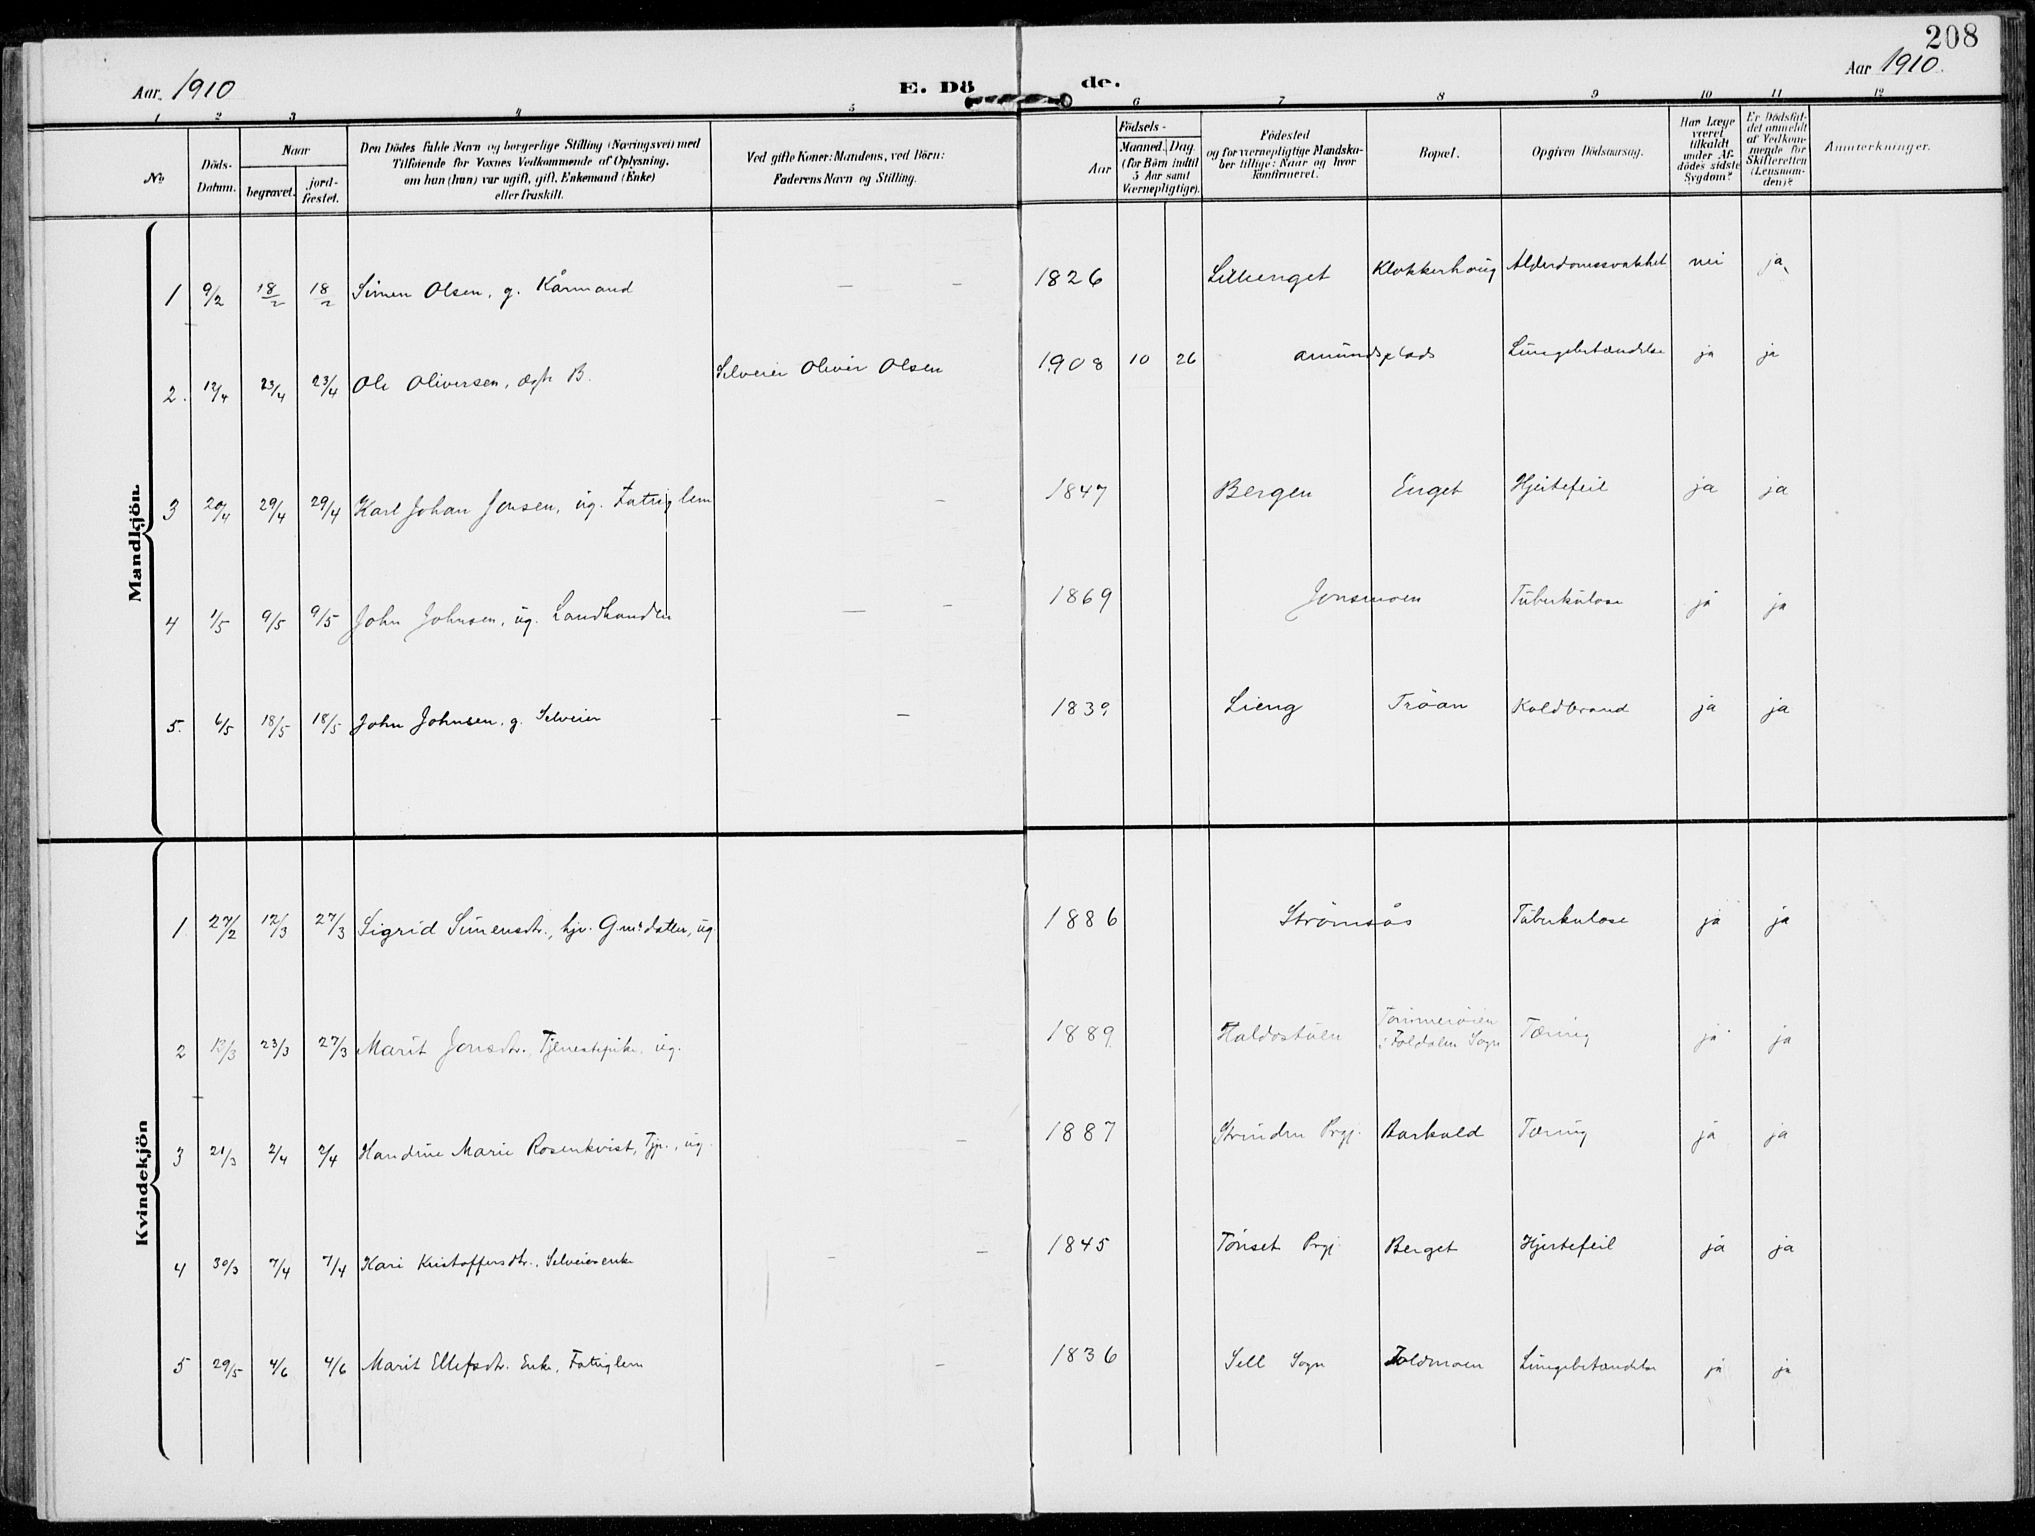 208
Aar 1910
E. Dö
de.
Aar 1910.
1 2 3 4 5 6 7 8 9 10 11 12
No
Döds-Datum.
Naar
begravet.
jord-fæstet.
Den Dödes fulde Navn og borgerlige Stilling (Næringsvei) med
Tilföiende for Voxnes Vedkommende af Oplysning,
om han (hun) var ugift, gift, Enkemand (Enke)
eller fraskilt.
Ved gifte Koner: Mandens, ved Börn:
Faderens Navn og Stilling.
Födsels-
Aar
Maaned. Dag.
(for Börn indtil
5 Aar samt
Værnepligtige).
Födested
og for værnepligtige Mandska-
ber tillige: Naar og hvor
konfirmeret.
Bopæl.
Opgiven Dödsaarsag.
Har Læge
været
tilkaldt
under Af-
dödes sidste
Sygdom?
Er Dödsfal-
det anmeldt
af Vedkom-
mende for
Skifteretten
(Lensman-
den)?
Anmerkninger.
Mandkjön.
1 9/2 18/2 18/2 Simen Olsen, g. Kårmand — — 1826 Lillienget Klokkerhaug Alderdomssvakhet nei ja
2. 12/4 23/4 23/4 Ole Oliversen, ægte B. Selveier Oliver Olsen 1908 10 26 Amundsplads Lungebetændelse ja ja
3 20/4 29/4 29/4 Karl Johan Jonsen, ug. Fattiglem — 1847 Bergen Enget Hjertefeil ja ja
4 1/5 9/5 9/5 John Johnsen, ug. Landhandler — — 1869 Jonsmoen Tuberkulose ja ja
5. 6/5 18/5 18/5 John Johnsen, g. Selveier — — 1839 Lieng Tröan Koldbrand ja ja
Kvindekjön
1 27/2 12/3 27/3 Sigrid Simensdtr., hjv. Gmdsdatter, ug. 1886 Strømsås Tuberkulose ja ja
2 13/3 23/3 27/3 Marit Jonsdtr. Tjenestepike, ug. 1889 Haldostuen Tommerøien
i Foldalen Sogn Tæring ja ja
3 21/3 2/4 2/4 Handine Marie Rosenkvist, Tjp., ug. — 1887 Strinden Prgj. Barkald Tæring ja ja
4 30/3 7/4 7/4 Kari Kristoffersdtr., Selveierenke — — 1845 Tönset Prgj. Berget Hjertefeil ja ja
5 29/5 4/6 4/6 Marit Ellefsdtr. Enke, Fattiglem — 1836 Sell Sogn Foldmoen Lungebetændelse ja ja